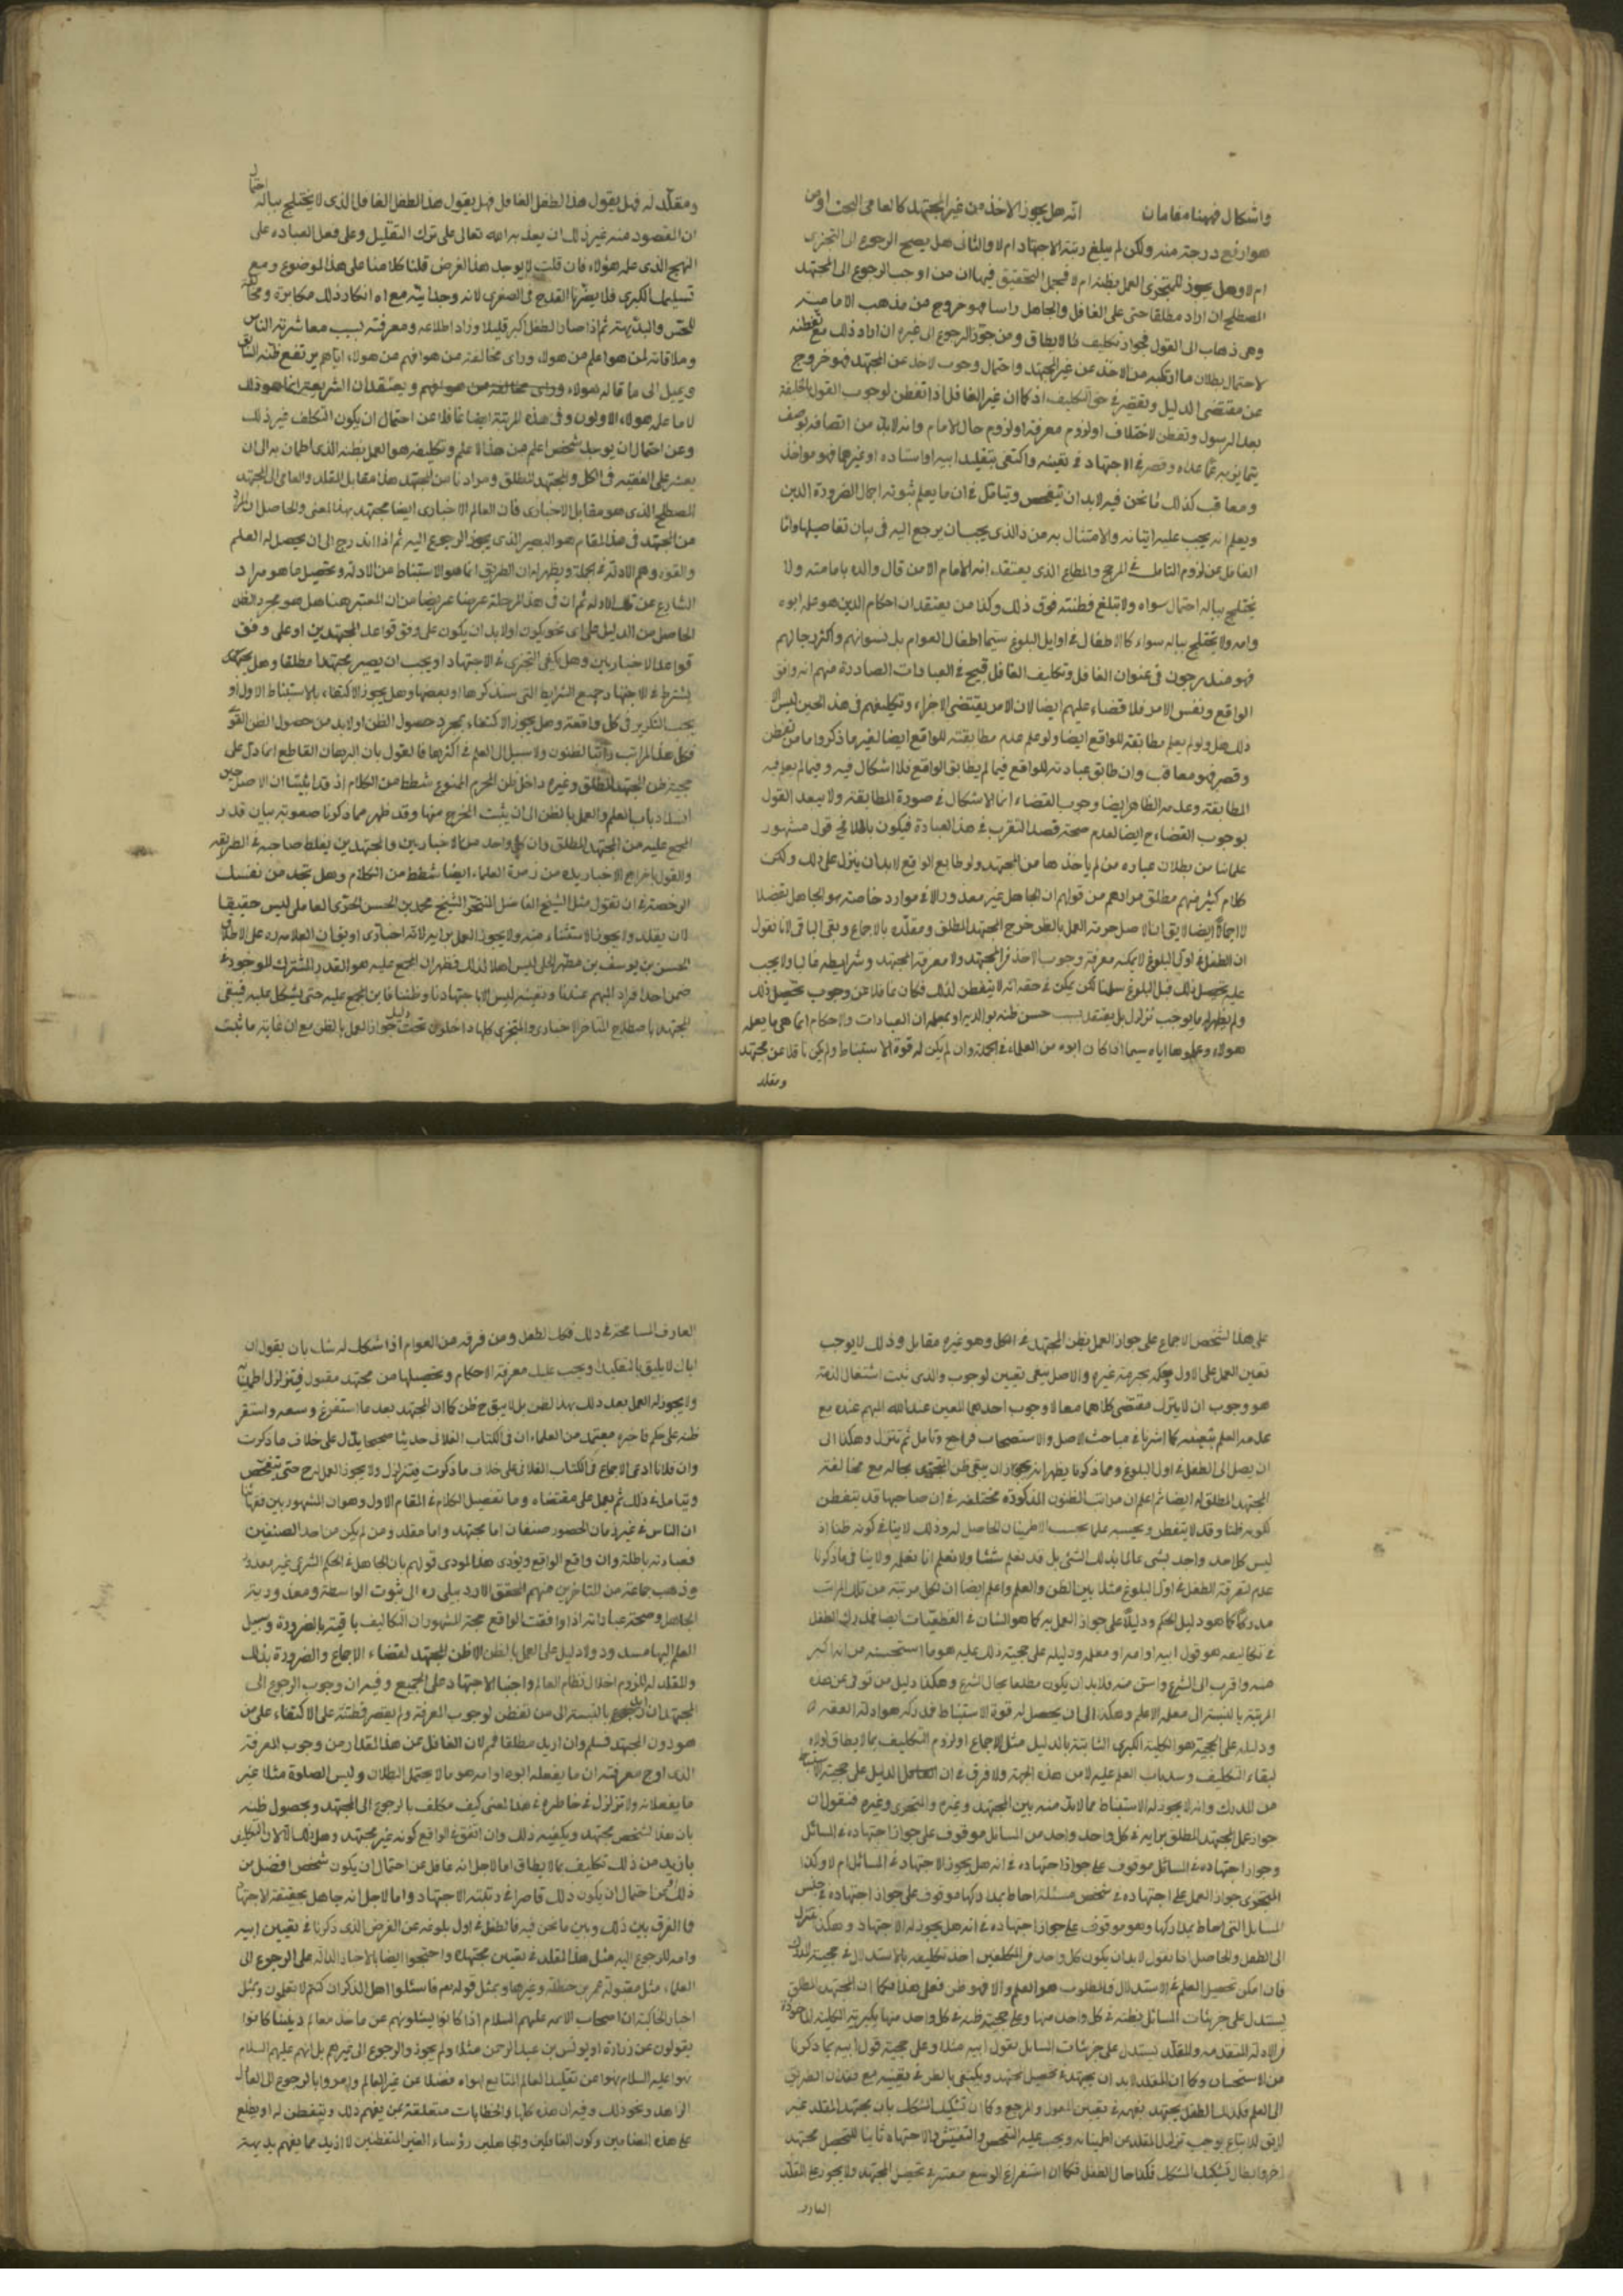 واشكال فههنا مقامان انه هل يجوز الاخذ من غير المجتهد كالعامي البحت او من
هو ارفع درجة منه ولكن لم يبلغ رتبة الاجتهاد ام لا والثاني هل يصح الرجوع الى المتجزي
ام لا وهل يجوز للمتجزي العمل بظنه ام لا فمجمل التحقيق فيها ان من اوجب الرجوع الى المجتهد
المصطلح ان اراد مطلقا حتى على الغافل والجاهل راسا فهو خروج من مذهب الامامية
وهي ذهاب الى القول بجواز تكليف ما لا يطاق ومن جوز الرجوع الى غيره ان اراد ذلك مع تفطنه
لاحتمال بطلان ما ارتكبه من الاخذ عن غير المجتهد واحتمال وجوب الاخذ عن المجتهد فهو خروج
عن مقتضى الدليل وتقصير في حق التكليف اذ كما ان غير الغافل اذا تفطن لوجوب القول بالخليفة
بعد الرسول وتفطن لاختلاف او لزوم معرفته او لزوم حال الامام وانه لابد من اتصافه بوصف
يتمايز به عما عداه وقصر في الاجتهاد في تعيينه واكتفى بتقليد ابيه او استاده او غيرهما فهو مواخذ
ومعاقب كذلك ما نحن فيه لابد ان يتفحص ويتامل في ان ما يعلم ثبوته اجمالا لضرورة الدين
ويعلم انه يجب عليه اتيانه والامتثال به من ذا الذي يجب ان يرجع اليه في بيان تفاصيلها واما
الغافل عن لزوم التامل في المرجع والمطاع الذي يعتقد انه الامام الا من قال والده بامامته ولا
يختلج بباله احتمال سواه ولا تبلغ فطنته فوق ذلك وكذا من يعتقد ان احكام الدين هو عليه ابوه
وامه ولا يختلج بباله سواء كالاطفال في اوايل البلوغ سيما اطفال العوام بل نسوانهم واكثر رجالهم
فهو مندرجون في عنوان الغافل وتكليف الغافل قبيح في العبادات الصادرة منهم انه وافق
الواقع ونفس الامر فلا قضاء عليهم ايضا لان الامر يقتضي الاجزاء وتكليفهم في هذا الحين ليس الا
ذلك بل ولو لم يعلم مطابقته للواقع ايضا ولو علم عدم مطابقته للواقع ايضا لغير ما ذكروا ما من تفطن
وقصر فهو معاقب وان طابق عبادته للواقع فيما لم يطابق الواقع فلا اشكال فيه وفيما لم يعلم فيه
المطابقة وعدمه الظاهر ايضا وجوب القضاء انما الاشكال في صورة المطابقة ولا يبعد القول
بوجوب القضاء ح ايضا لعدم صحة قصد التقرب في هذه العبادة فيكون باطلا فح قول مشهور
علمائنا من بطلان عباده من لم ياخذها من المجتهد ولو طابع الواقع لابد ان ينزل على ذلك ولكن
كلام كثير منهم مطلق مرادهم من قولهم ان الجاهل غير معذور الا في موارد خاصة هو الجاهل تفضلا
لا اجمالا ايضا لا يق الاصل حرمة العمل بالظن خرج المجتهد المطلق ومقلده بالاجماع وبقي الباقي لانا نقول
ان الطفل في اول البلوغ لا يمكنه معرفة وجوب الاخذ من المجتهد ولا معرفة المجتهد وشرايطه غالبا ولا يجب
عليه تحصيل ذلك قبل البلوغ سلمنا لكن يمكن في حقه انه لا يتفطن لذلك فكان غافلا عن وجوب تحصيل ذلك
ولم يظهر له ما يوجب تزلزل بل يعتقد بسبب حسن ظنه بوالديه او بمعلمه ان العبادات والاحكام انما هي ما يعلمه
هولاء وعلموها اياه سيما اذا كان ابوه من العلماء في الجملة وان لم يكن له قوة الاستنباط ولم يكن ناقلا عن مجتهد
ومقلد
ومقلد له فهل يقول هذا لطفل الغافل فهل يقول هذا الطفل الغافل الذي لا يختلج بباله احتمال
ان المقصود منه غير ذلك ان يعذبه الله تعالى على ترك التقليل وعلى فعل العباده على
النهج الذي عليه هؤلاء فان قلت لا يوجد هذا الفرض قلنا كلامنا على هذا الموضوع ومع
تسليمنا الكبرى فلا يضرنا القدح في الصغرى لانه وجدانية مع انه انكار ذلك مكابرة ومخالفة
للحس والبديهة ثم اذا صار الطفل اكبر قليلا وزاد اطلاعه ومعرفته بسبب معاشرته الناس
وملاقاته لمن هو اعلم من هولاء وراى مخالفته من هو افهم من هولاء اياهم يرتفع ظنه السابق
ويميل الى ما قاله هولاء وراى مخالفته من هو افهم ويعتقد ان الشريعة انما هو ذلك
لا ما عليه هولاء الاولون وفي هذه المرتبة ايضا غافل عن احتمال ان يكون التكلف غير ذلك
وعن احتمال ان يوجد شخص اعلم من هذا الاعلم وتكليفه هو العمل بظنه الذي اطمان به الى ان
يعثر على الفقيه في الكل والمجتهد المطلق ومرادنا من المجتهد هنا مقابل المقلد والعامي لا المجتهد
المصطلح الذي هو مقابل الاخباري فان العالم الاخباري ايضا مجتهد بهذا المعنى والحاصل ان المراد
من المجتهد في هذا المقام هو البصير الذي يجوز الرجوع اليه ثم اذا اندرج الى ان يحصل له العلم
والقوة وفهم الادلة في الجملة ويظهر له ان الطريق انما هو الاستنباط من الادلة وتحصيل ما هو مراد
الشارع عن تلك الادلة ثم ان في هذا المرحلة عرضا عريضا من ان المعتبر هنا هل هو مجرد الظن
الحاصل من الدليل على اى نحو يكون او لابد ان يكون على وفق قواعد المجتهدين او على وفق
قواعد الاخباريين وهل يكفي التجزي في الاجتهاد او يجب ان يصير مجتهدا مطلقا وهل يجتهد
يشترط في الاجتهاد جميع الشرايط التي سنذكرها او بعضها وهل يجوز الاكتفاء بالاستنباط الاول او
يجب التكرير في كل واقعة وهل يجوز الاكتفاء بمجرد حصول الظن او لابد من حصول الظن القوي
فكل هذا المراتب مراتب الظنون ولا سبيل الى العلم في اكثرها فالقول بان البرهان القاطع انما دل على
حجية ظن المجتهد المطلق وغيره داخل ظن المحرم الممنوع شطط من الكلام اذ قد اثبتنا ان الاصل حين
انسداد باب العلم والعمل بالظن الا ان يثبت المخرج منها وقد ظهر مما ذكرنا صعوبة بيان قدر
المجمع عليه من المجتهد المطلق وان كل واحد من الاخباريين والمجتهدين يغلط صاحبه في الطريقه
والقول باخراج الاخباريين من زمرة العلماء ايضا شطط من الكلام وهل تجد من نفسك
الرخصة في ان تقول مثل الشيخ الفاضل المتبحر الشيخ محمد بن الحسن الحر العاملي ليس حقيقا
لان يقلد ولا يجوز الاستفتاء منه ولا يجوز العمل برايه لانه اخباري او يق ان العلامه ره على الاطلاق
الحسن بن يوسف بن مطهر الحلي ليس اهلا لذلك فظهر ان المجمع عليه هو القدر المشترك الموجود في
ضمن احد افراد المبهم عندنا وتعيينه ليس الا باجتهادنا وظننا فاين المجمع عليه حتى يشكل عليه فيبقى
المجتهد باصطلاح المتاخر الاخباري والمتجزي كلها داخلون تحت دليل جواز العمل بالظن مع ان غاية ما ثبت
على هذا لشخص الاجماع على جواز العمل بظن المجتهد في الكل وهو غيره مقابل وذلك لا يوجب
تعين العمل على الاول وحكم بحرمة غيره والاصل ينفي تعيين لوجوب والذي ثبت اشتغال الذمة
هو وجوب ان لا يترك مقتضى كلاهما معا لا وجوب احدهما المعين عند الله المبهم عنده مع
عدم العلم بتعيينه كما اشرنا في مباحث الاصل والاستصحاب فراجع وتامل ثم تنزل وهكذا الى
ان يصل الى الطفل في اول البلوغ ومما ذكرنا يظهر انه يجوز ان يبقى ظن المتجزي بحاله مع مخالفة
المجتهد المطلق له ايضا ثم اعلم ان مراتب الظنون المذكورة مختلفة في ان صاحبها قد يتفطن
لكونه ظنا وقد لا يتفطن ويحسبه علما بحسب الاطمينان الحاصل له وذلك لا ينافي كونه ظنا اذ
ليس كل احد واجد بشي عالما بذلك الشي بل قد نعلم شيئا ولا نعلم انا نعلمه ولا ينافي ما ذكرنا
عدم تفرقة الطفل في اول البلوغ مثلا بين الظن والعلم واعلم ايضا ان لكل مرتبة من تلك المراتب
مدركا كما هو دليل الحكم ودليلا على جواز العمل به كما هو الشان في القطعيات ايضا فمدرك الطفل
في تكاليفه هو قول ابيه او امه او معلمه ودليله على حجية ذلك عليه هو ما استحسنه من انه اكبر
منه واقرب الى الشرع واسن منه فلابد ان يكون مطلعا بحال الشرع وهكذا دليل من ترقى عن هذه
المرتبة بالنسبة الى معلمه الاعلم وهكذا الى ان يحصل له قوة الاستنباط فمدركه هو ادلة الفقه
ودليله على الحجية هو الكلية الكبرى الثابتة بالدليل مثل الاجماع او لزوم التكليف بما لا يطاق لولاه
لبقاء التكليف وسد باب العلم عليه لا من هذه الجهة ولا فرق في ان الدليل على حجية الاستنباط
من المدرك وانه لا يجوز له الاستنباط مما لابد منه بين المجتهد وغيره والمتجزي وغيره فنقول ان
جواز عمل المجتهد المطلق برايه في كل واحد واحد من المسائل موقوف على جواز اجتهاده في المسائل
وجواز اجتهاده في المسائل موقوف على جواز اجتهاده في انه هل يجوز الاجتهاد في المسائل ام لا وكذا
المتجزي جواز العمل على اجتهاده في شخص مسئلة احاط بمداركها موقوف على جواز اجتهاده في جنس
المسايل التي احاط بمداركها وهو موقوف على جواز اجتهاده في انه هل يجوز له الاجتهاد وهكذا تنزل
الى الطفل والحاصل انا نقول لابد ان يكون كل واحد من المكلفين اخذ تكليفه بالاستدلال في حجية المدرك
فان امكن تحصيل العلم في الاستدلال فالمطلوب هو العلم والا فهو ظن فعلى هذا فكما ان المجتهد المطلق
يستدل على جزئيات المسائل بظنه في كل واحد منها وعلى حجية ظنه في كل واحد منها بكبريه الكلية الماخوذة
من الادلة المتقدمه والمقلد يستدل على جزئيات المسايل بقول ابيه مثلا وعلى حجية قول ابيه بما ذكرنا
من الاستحسان وكما ان المقلد لابد ان يجتهد في تحصيل مجتهد ويكتفي بالظن في تعيينه مع فقدان الطريق
الى العلم فكذلك الطفل يجتهد بفهمه في تعيين المعول والمرجع وكما ان تشكيك المشكك بان مجتهد المقلد غير
لايق للاتباع يوجب تزلزل المقلد عن اطمينانه ويجب عليه التفحص والتفتيش والاجتهاد ثانيا لتحصيل مجتهد
اخر وابطال تشكيك المشكك فكذا حال الطفل فكما ان استفراغ الوسع معتبر في تحصيل المجتهد ولا يجوز على المقلد
العارف
العارف المسامحة في ذلك فكك الطفل ومن فرقه من العوام اذا شكك له شاك بان يقول ان
اباك لا يليق بالتقليد ويجب عليك معرفة الاحكام وتحصيلها من مجتهد مقبول فيتزلزل اطمينانه
ولا يجوز له العمل بعد ذلك بهذا الظن بل لا يبق ح ظن كما ان المجتهد بعد ما استفرغ وسعه واستقر
ظنه على حكم فاخبره معتمد من العلماء ان في الكتاب الفلاني حديثا صحيحا يدل على خلاف ما ذكرت
وان فلانا ادعى الاجماع في الكتاب الفلاني على خلاف ما ذكرت فيتزلزل ولا يجوز العمل له ح حتى يتفحص
ويتامل في ذلك ثم يعمل على مقتضاه وما تفصيل الكلام في المقام الاول وهو ان المشهور بين فقهائنا
ان الناس في غير زمان الحضور صنفان اما مجتهد واما مقلد ومن لم يكن من احد الصنفين
فعبادته باطلة وان واقع الواقع ويؤدى هذا المودى قولهم بان الجاهل في الحكم الشرعي غير معذور
وذهب جماعة من المتاخرين منهم المحقق الاردبيلي ره الى ثبوت الواسطة ومعذورية
الجاهل وصحة عباداته اذا وافقت الواقع حجة المشهور ان التكاليف باقية بالضرورة وسبيل
العلم اليها مسدود ولا دليل على العمل بالظن الا ظن المجتهد لقضاء الاجماع والضرورة بذلك
والمقلد له للزوم اخلال نظام العالم واجبنا الاجتهاد على الجميع وفيه ان وجوب الرجوع الى
المجتهد ان اريد بالنسبة الى من تفطن لوجوب المعرفة ولم يقصر فطنته على الاكتفاء على من
هو دون المجتهد فسلم وان اريد مطلقا فمم لان الغافل عن هذا المقدار من وجوب المعرفة
الذي اوج معرفته ان ما يفعله ابوه او امه هو ما لا يحتمل البطلان وليس الصلوة مثلا غير
ما يفعلانه ولا تزلزل في خاطره في هذا المعنى كيف مكلف بالرجوع الى المجتهد وبحصول ظنه
بان هذا الشخص مجتهد ويكفيه ذلك وان اتفق في الواقع كونه غير مجتهد وهل ذلك الا لان التكليف
بازيد من ذلك تكليف بما لا يطاق اما لاجل انه غافل عن احتمال ان يكون شخص افضل من
ذلك ومن احتمال ان يكون ذلك قاصرا في رتبة الاجتهاد واما لاجل انه جاهل بحقيقة الاجتهاد
فالفرق بين ذلك وبين ما نحن فيه فالطفل في اول بلوغه عن الفرض الذي ذكرنا في تعيين ابيه
وامه للرجوع اليه مثل هذا المقلد في تعيين مجتهده واحتجوا ايضا بالاخبار الدالة على الرجوع الى
العلماء مثل مقبولة عمر بن حنظلة وغيرها وبمثل قوله تعم فاسئلوا اهل الذكر ان كنتم لا تعلمون ومثل
اخبار الحاكية ان اصحاب الائمه عليهم السلام اذا كانوا يسئلونهم عن ماخذ معالم ديننا كانوا
يقولون عن زرارة او يونس بن عبد الرحمن مثلا ولم يجوزوا الرجوع الى غيرهم بل انهم عليهم السلام
نهوا عليه السلام نهوا عن تقليد العالم التابع لهواه فضلا عن غير العالم وامروا بالرجوع الى العالم
الزاهد ونحو ذلك وفيه ان هذه كلها والخطابات متعلقة بمن يفهم ذلك ويتفطن له او يطلع
على هذه المضامين وكون الغافلين والجاهلين رؤساء الغير المتفطنين لا ازيد مما يفهم بديهته